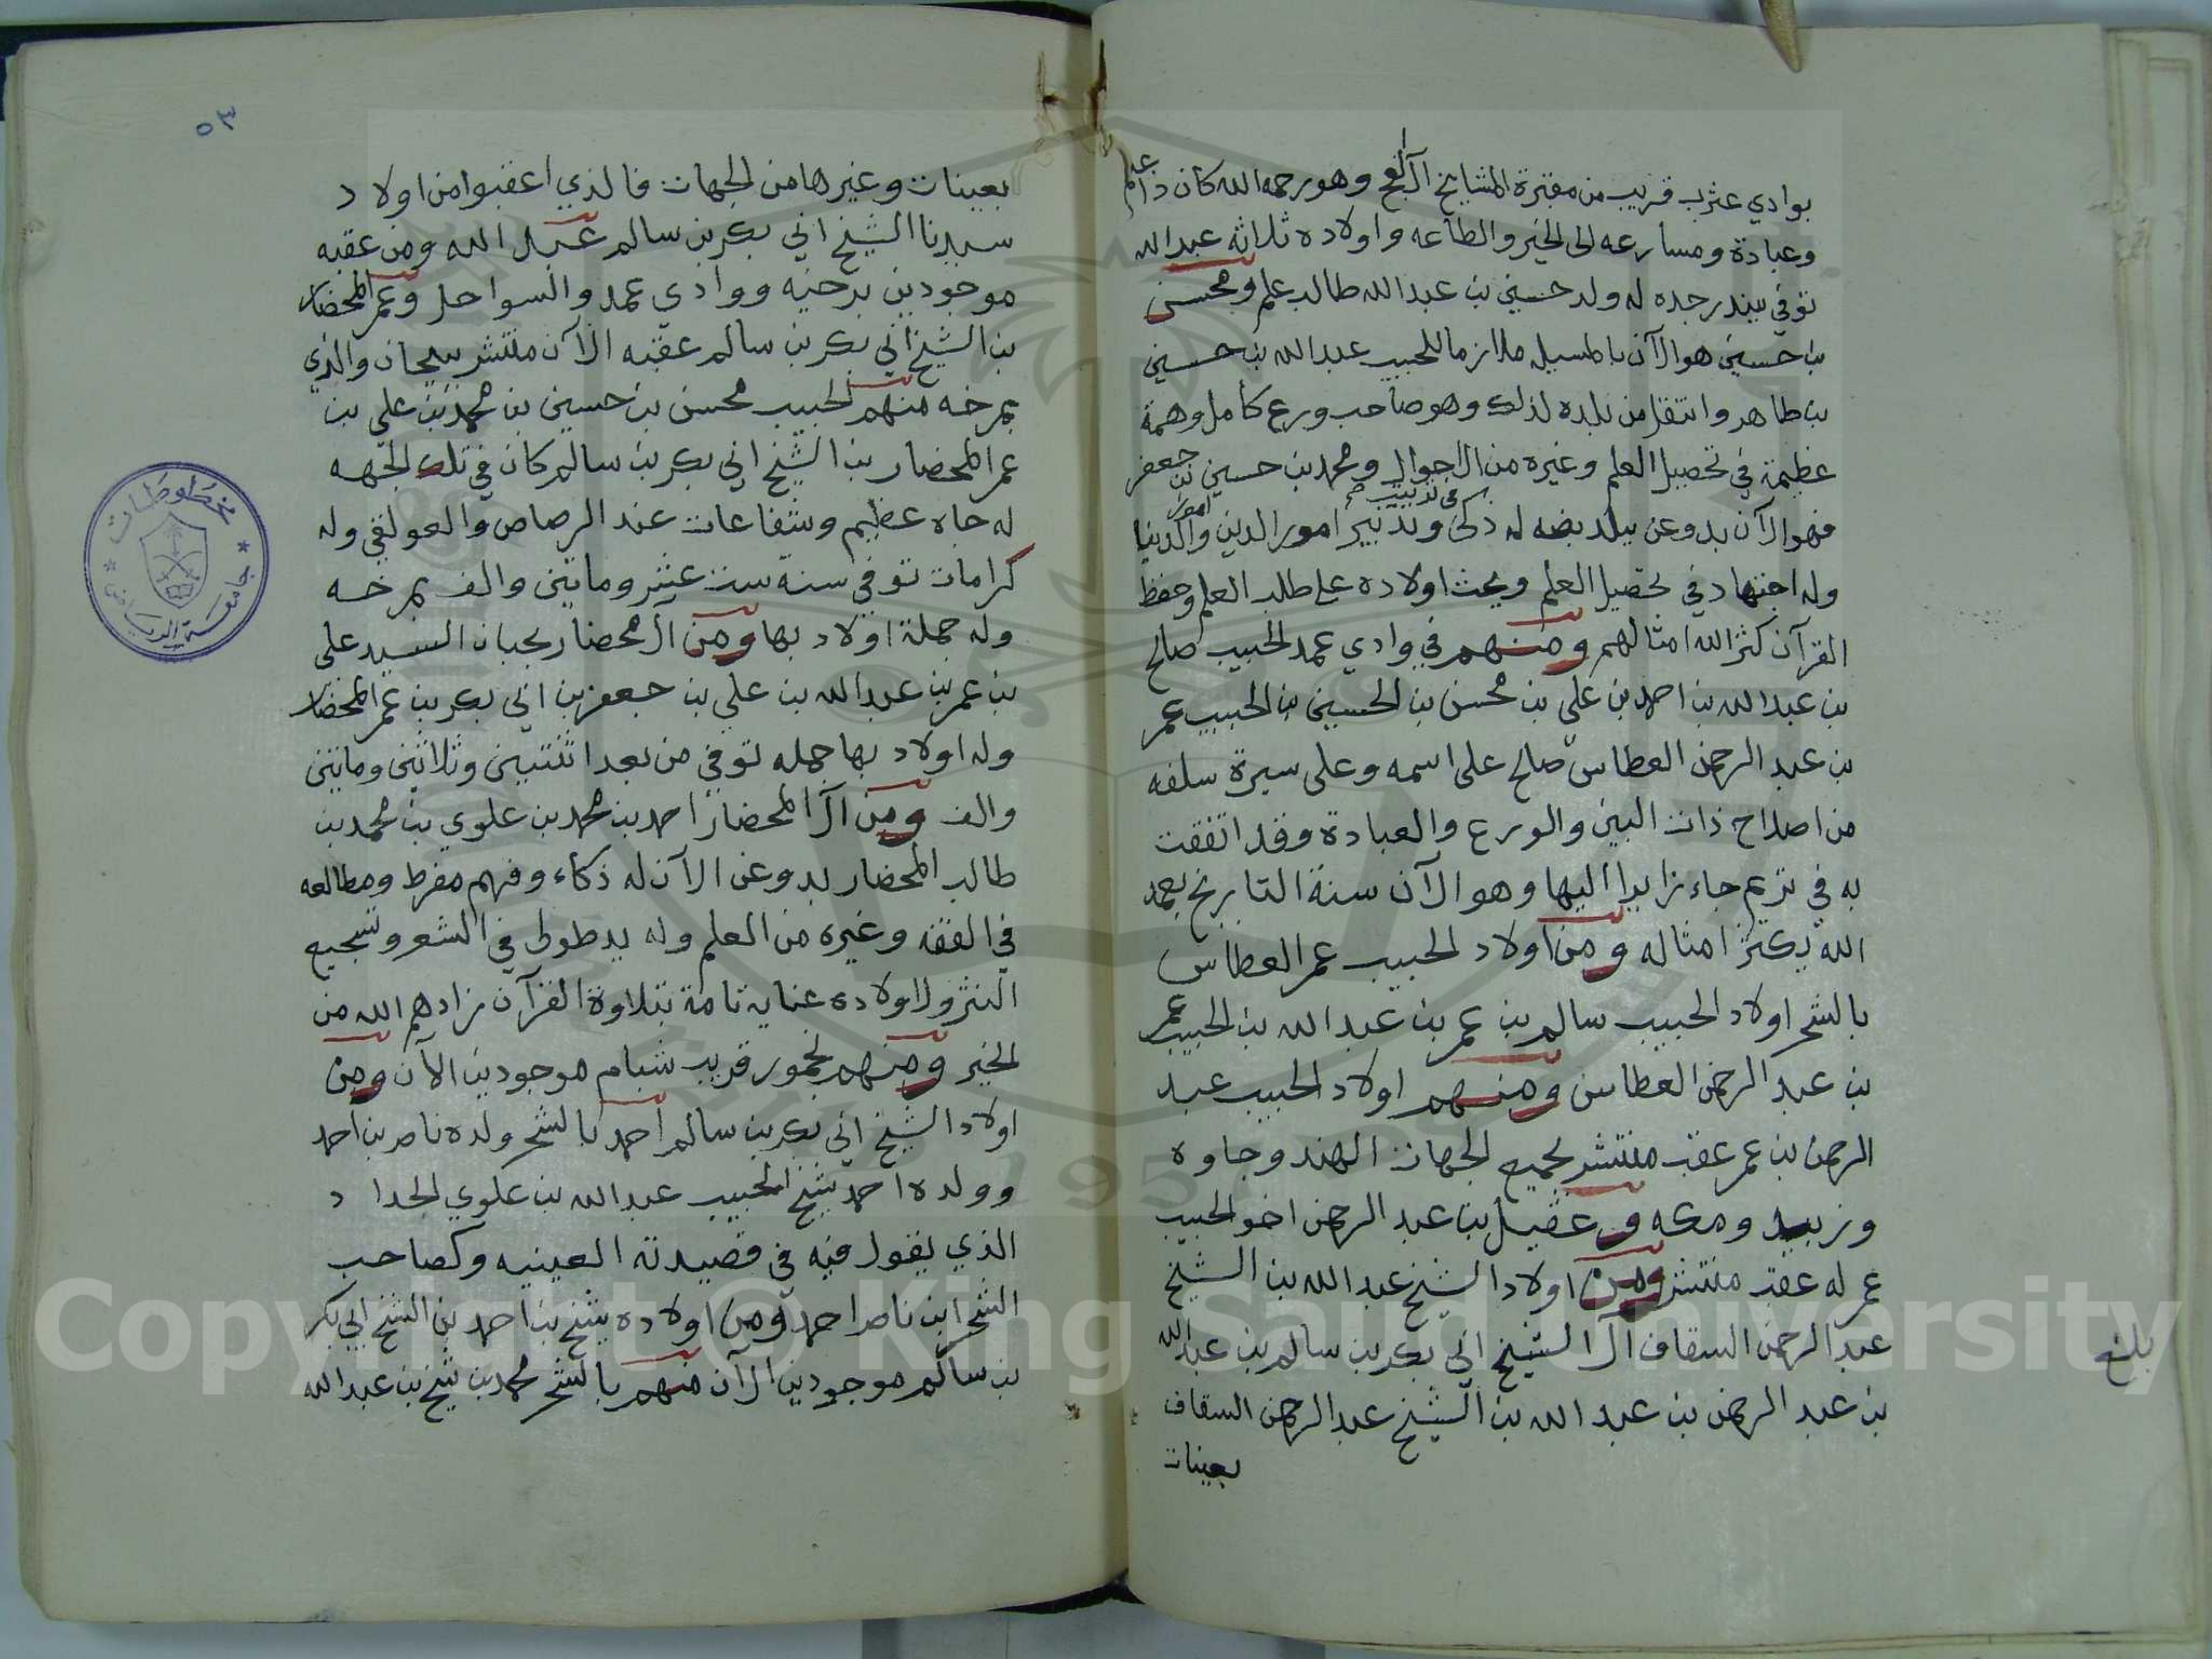 بوادي عثرب قريب من مقبرة المشايخ آل وهو رحمه الله كان ذا علم
وعبادة ومسارعه الى الخير والطاعه واولاده ثلاثه عبد الله
توفي ببندر جده له ولد حسين بن عبد الله طالب علم ومحسن
بن حسين هو الآن بالمسيله ملازما للحبيب عبد الله بن حسين
بن طاهر وانتقل من بلده لذلك وهو صاحب ورع كامل وهمة
عظيمة في تحصيل العلم وغيره من الاحوال ومحمد بن حسين بن جعفر
فهو الآن بدوعن ببلد بضه له ذكى وتدبير امور الدين وامور الدنيا
وله اجتهاد في تحصيل العلم ويحث اولاده على طلب العلم وحفظ
القرآن كثر الله امثالهم ومنهم في وادي عمد الحبيب صالح
بن عبد الله بن احمد بن علي بن محسن بن الحسين بن الحبيب عمر
بن عبد الرحمن العطاس صالح على اسمه وعلى سيرة سلفه
من اصلاح ذات البين والورع والعبادة وقد اتفقت
به في تريم جاء زايرا اليها وهو الآن سنة التاريخ بعمد
الله يكثر امثاله ومن اولاد الحبيب عمر العطاس
بالشحر اولاد الحبيب سالم بن عمر بن عبد الله بن الحبيب عمر
بن عبد الرحمن العطاس ومنهم اولاد الحبيب عبد
الرحمن بن عمر عقب منتشر بجميع الجهات الهند وجاوه
وزبيد ومكه وعقيل بن عبد الرحمن اخو الحبيب
عمر له عقب منتشر ومن اولاد الشيخ عبد الله بن الشيخ
عبد الرحمن السقاف آل الشيخ ابي بكر بن سالم بن عبد الله
بن عبد الرحمن بن عبد الله بن الشيخ عبد الرحمن السقاف
بعينات
بلغ
٥٣
بعينات وغيرها من الجهات فالذي اعقبوا من اولاد
سيدنا الشيخ ابي بكر بن سالم عبد الله ومن عقبه
موجودين برخيه ووادي عمد والسواحل وعمر المحضار
بن الشيخ ابي بكر بن سالم عقبه الآن منتشر بيحان والذي
بمرخه منهم الحبيب محسن بن حسين بن محمد بن علي بن
عمر المحضار بن الشيخ ابي بكر بن سالم كان في تلك الجهه
له جاه عظيم وشفاعات عند الرصاص والعولقي وله
كرامات توفي سنة ست عشر وماتين والف بمرخه
وله جملة اولاد بها ومن آل محضار بحبان السيد علي
بن عمر بن عبد الله بن علي بن جعفر بن ابي بكر بن عمر المحضار
وله اولاد بها جمله توفي من بعد اثنتين وثلاثين وماتين
والف ومن آل المحضار احمد بن محمد بن علوي بن محمد بن
طالب المحضار بدوعن الآن له ذكاء وفهم مفرط ومطالعه
في الفقه وغيره من العلم وله يد طولى في الشعر وتسجيع
النثر ولاولاده عناية تامة بتلاوة القرآن زادهم الله من
الخير ومنهم بخمور قريب شبام موجودين الآن ومن
اولاد الشيخ ابي بكر بن سالم احمد بالشحر ولده ناصر بن احمد
وولده احمد شيخ الحبيب عبد الله بن علوي الحداد
الذي يقول فيه في قصيدته العينيه وكصاحب
الشحر ابن ناصر احمد ومن اولاده شيخ بن احمد بن الشيخ ابي بكر
بن سالم موجودين الآن منهم بالشحر محمد بن شيخ بن عبد الله
مخطوطات
جامعة الرياض
Copyright © King Saud University
1957